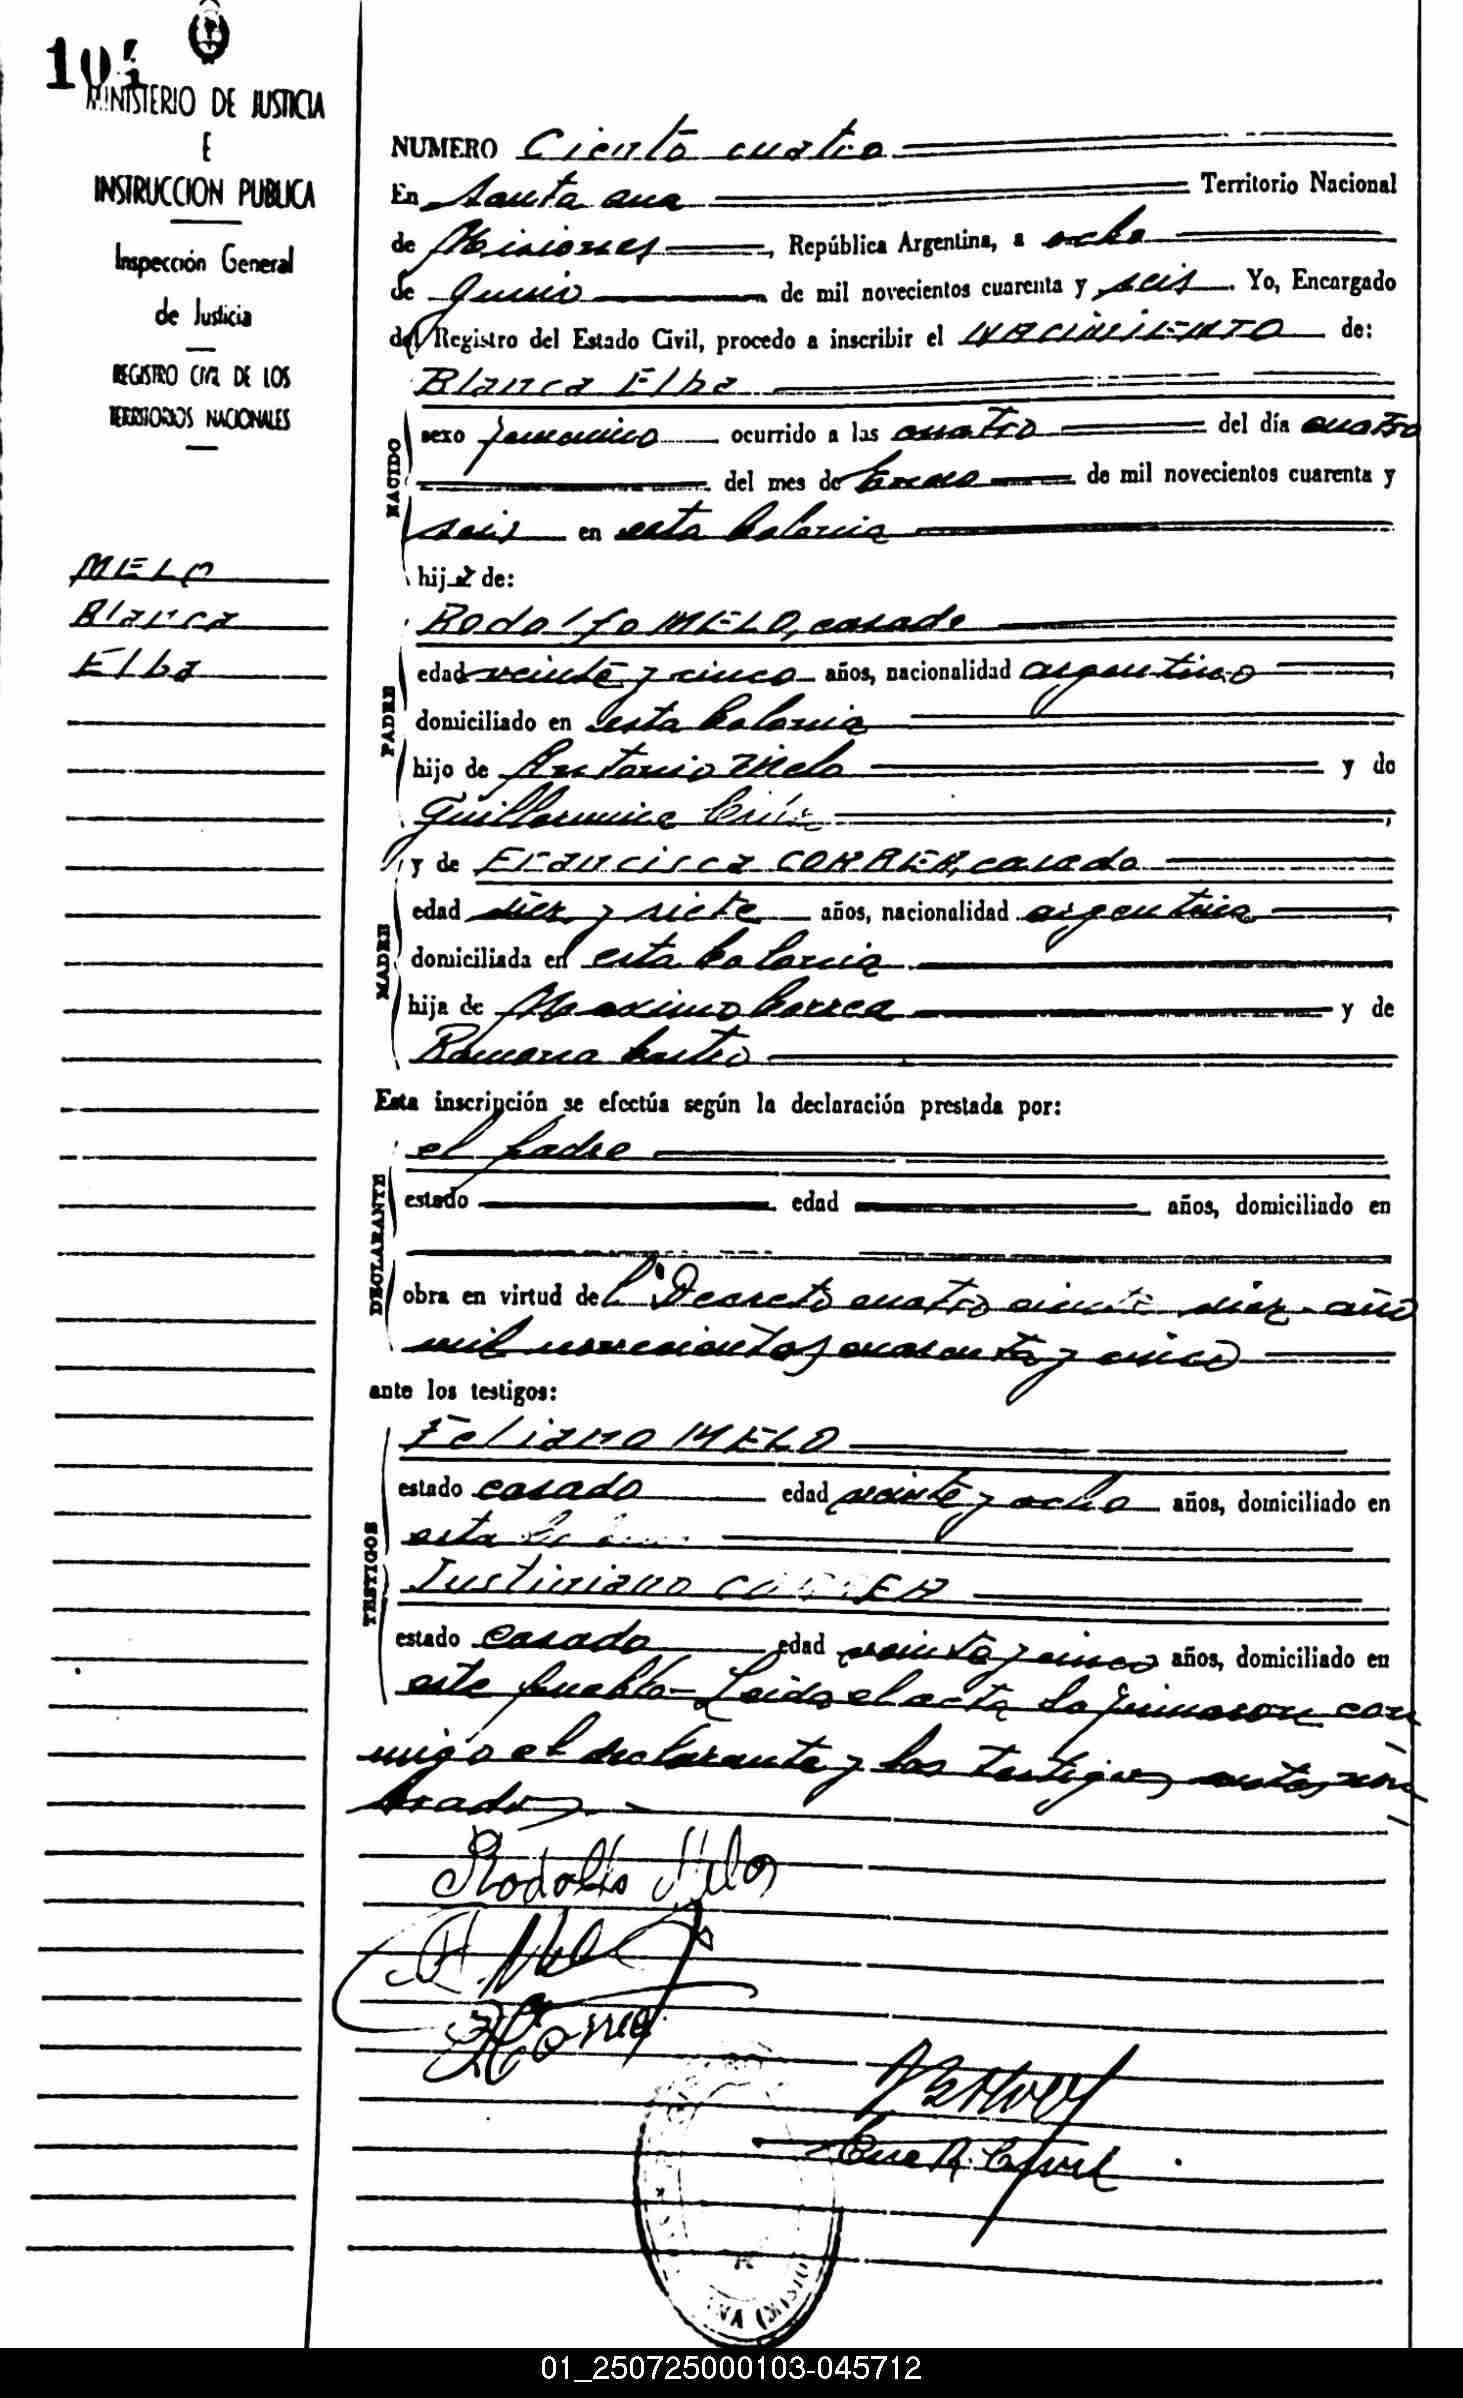 104
MINISTERIO DE JUSTICIA
E
INSTRUCCION PUBLICA
Inspección General
de Justicia
REGISTRO CIVIL DE LOS
TERRITORIOS NACIONALES
MELO
Blanca
Elba
NUMERO Ciento cuatro
En Santa ana Territorio Nacional
de Misiones, República Argentina, a ocho
de Junio de mil novecientos cuarenta y seis. Yo, Encargado
del Registro del Estado Civil, procedo a inscribir el NACIMIENTO de:
Blanca Elba
NACIDO
sexo femenino ocurrido a las cuatro del día cuatro
del mes de de mil novecientos cuarenta y
seis en esta Colonia
hija de:
PADRE
Rodolfo MELO, casado
edad veinte y cinco años, nacionalidad argentino
domiciliado en esta Colonia
hijo de Antonio Melo y de
Guillermina
MADRE
y de Francisca CORREA, casada
edad diez y siete años, nacionalidad argentina
domiciliada en esta Colonia
hija de Maximo Correa y de
Ramona Castro
Esta inscripción se efectúa según la declaración prestada por:
DECLARANTE
el padre
estado edad años, domiciliado en
obra en virtud del Decreto cuatro diez año
mil novecientos cuarenta y cinco
ante los testigos:
TESTIGOS
Feliano MELO
estado casado edad veinte y ocho años, domiciliado en
esta
Justiniano CORREA
estado casado edad veinte y cinco años, domiciliado en
este pueblo - Leida el acta la firmaron con
migo el declarante y los testigos antes nom
brados.-
Rodolfo Melo
Melo
Correa
Enc R. Civil
01_250725000103-045712